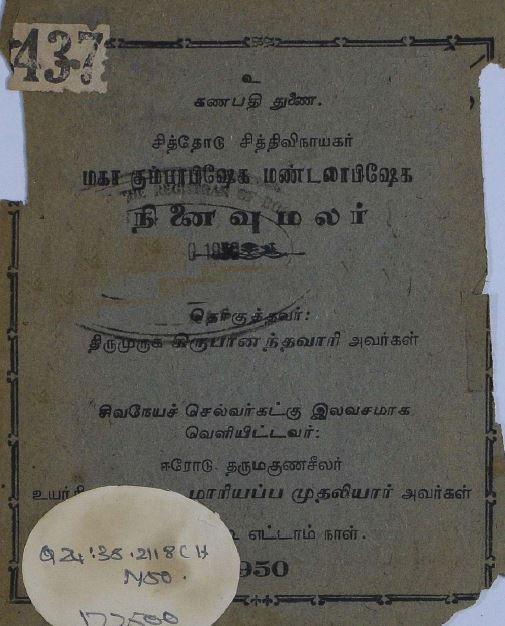 437
உ
கணபதி துணை.
சித்தோடு சித்திவிநாயகர்
மகா கும்பாபிஷேக மண்டலாபிஷேக
நினைவுமலர்
தொகுத்தவர்:
திருமுருக கிருபானந்தவாரி அவர்கள்
சிவநேயச் செல்வர்கட்கு இலவசமாக
வெளியிட்டவர்:
ஈரோடு தருமகுணசீலர்
மாரியப்ப முதலியார் அவர்கள்
எட்டாம் நாள்.
950
Q24:35.2118CH
N50.
177500